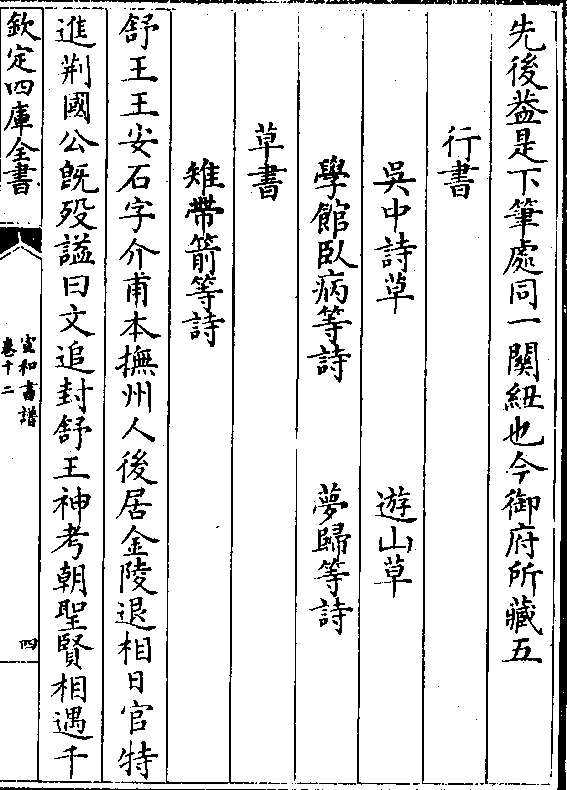 先後葢是下筆處同一關紐也今御府所藏五
行書
吳中詩草　遊山草
學館臥病等詩　夢歸等詩
草書
雉帶箭等詩
舒王王安石字介甫本撫州人後居金陵退相日官特
進荆國公旣歿謚曰文追封舒王神考朝聖賢相遇千
欽定四庫全書
宣和書譜
卷十二
四